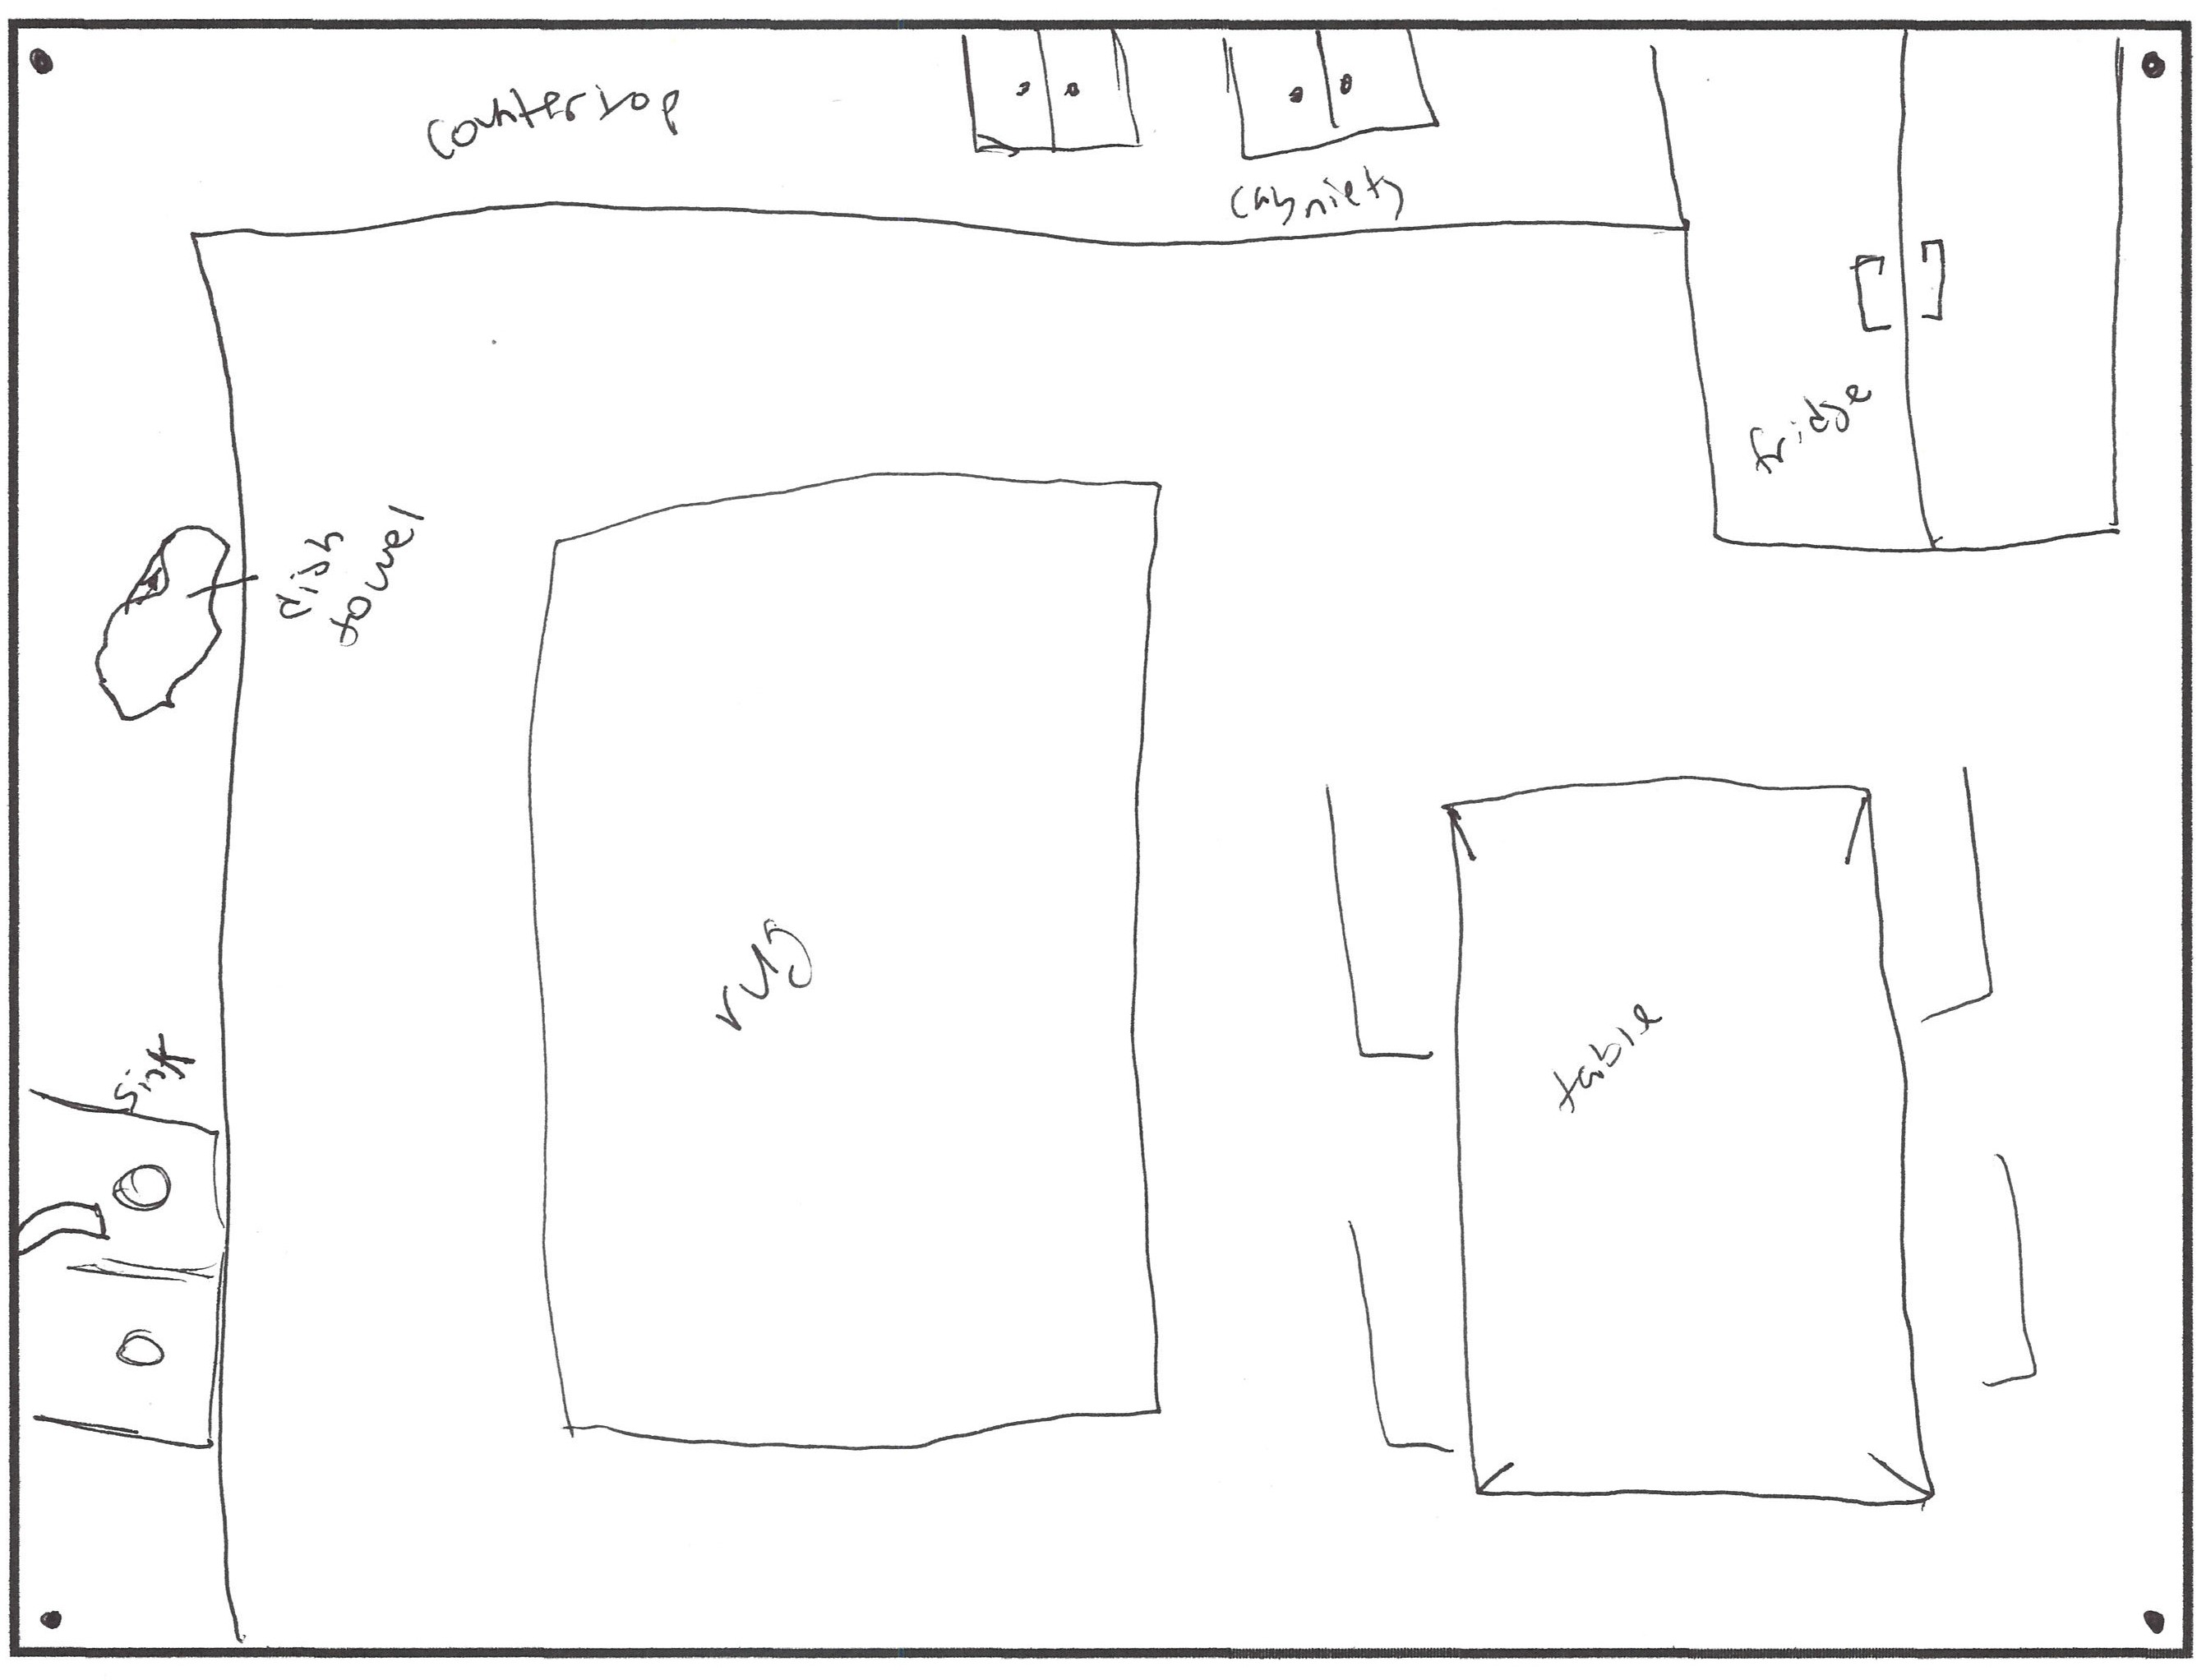 countertop
cabniets
fridge
dish
towel
rug
table
sink